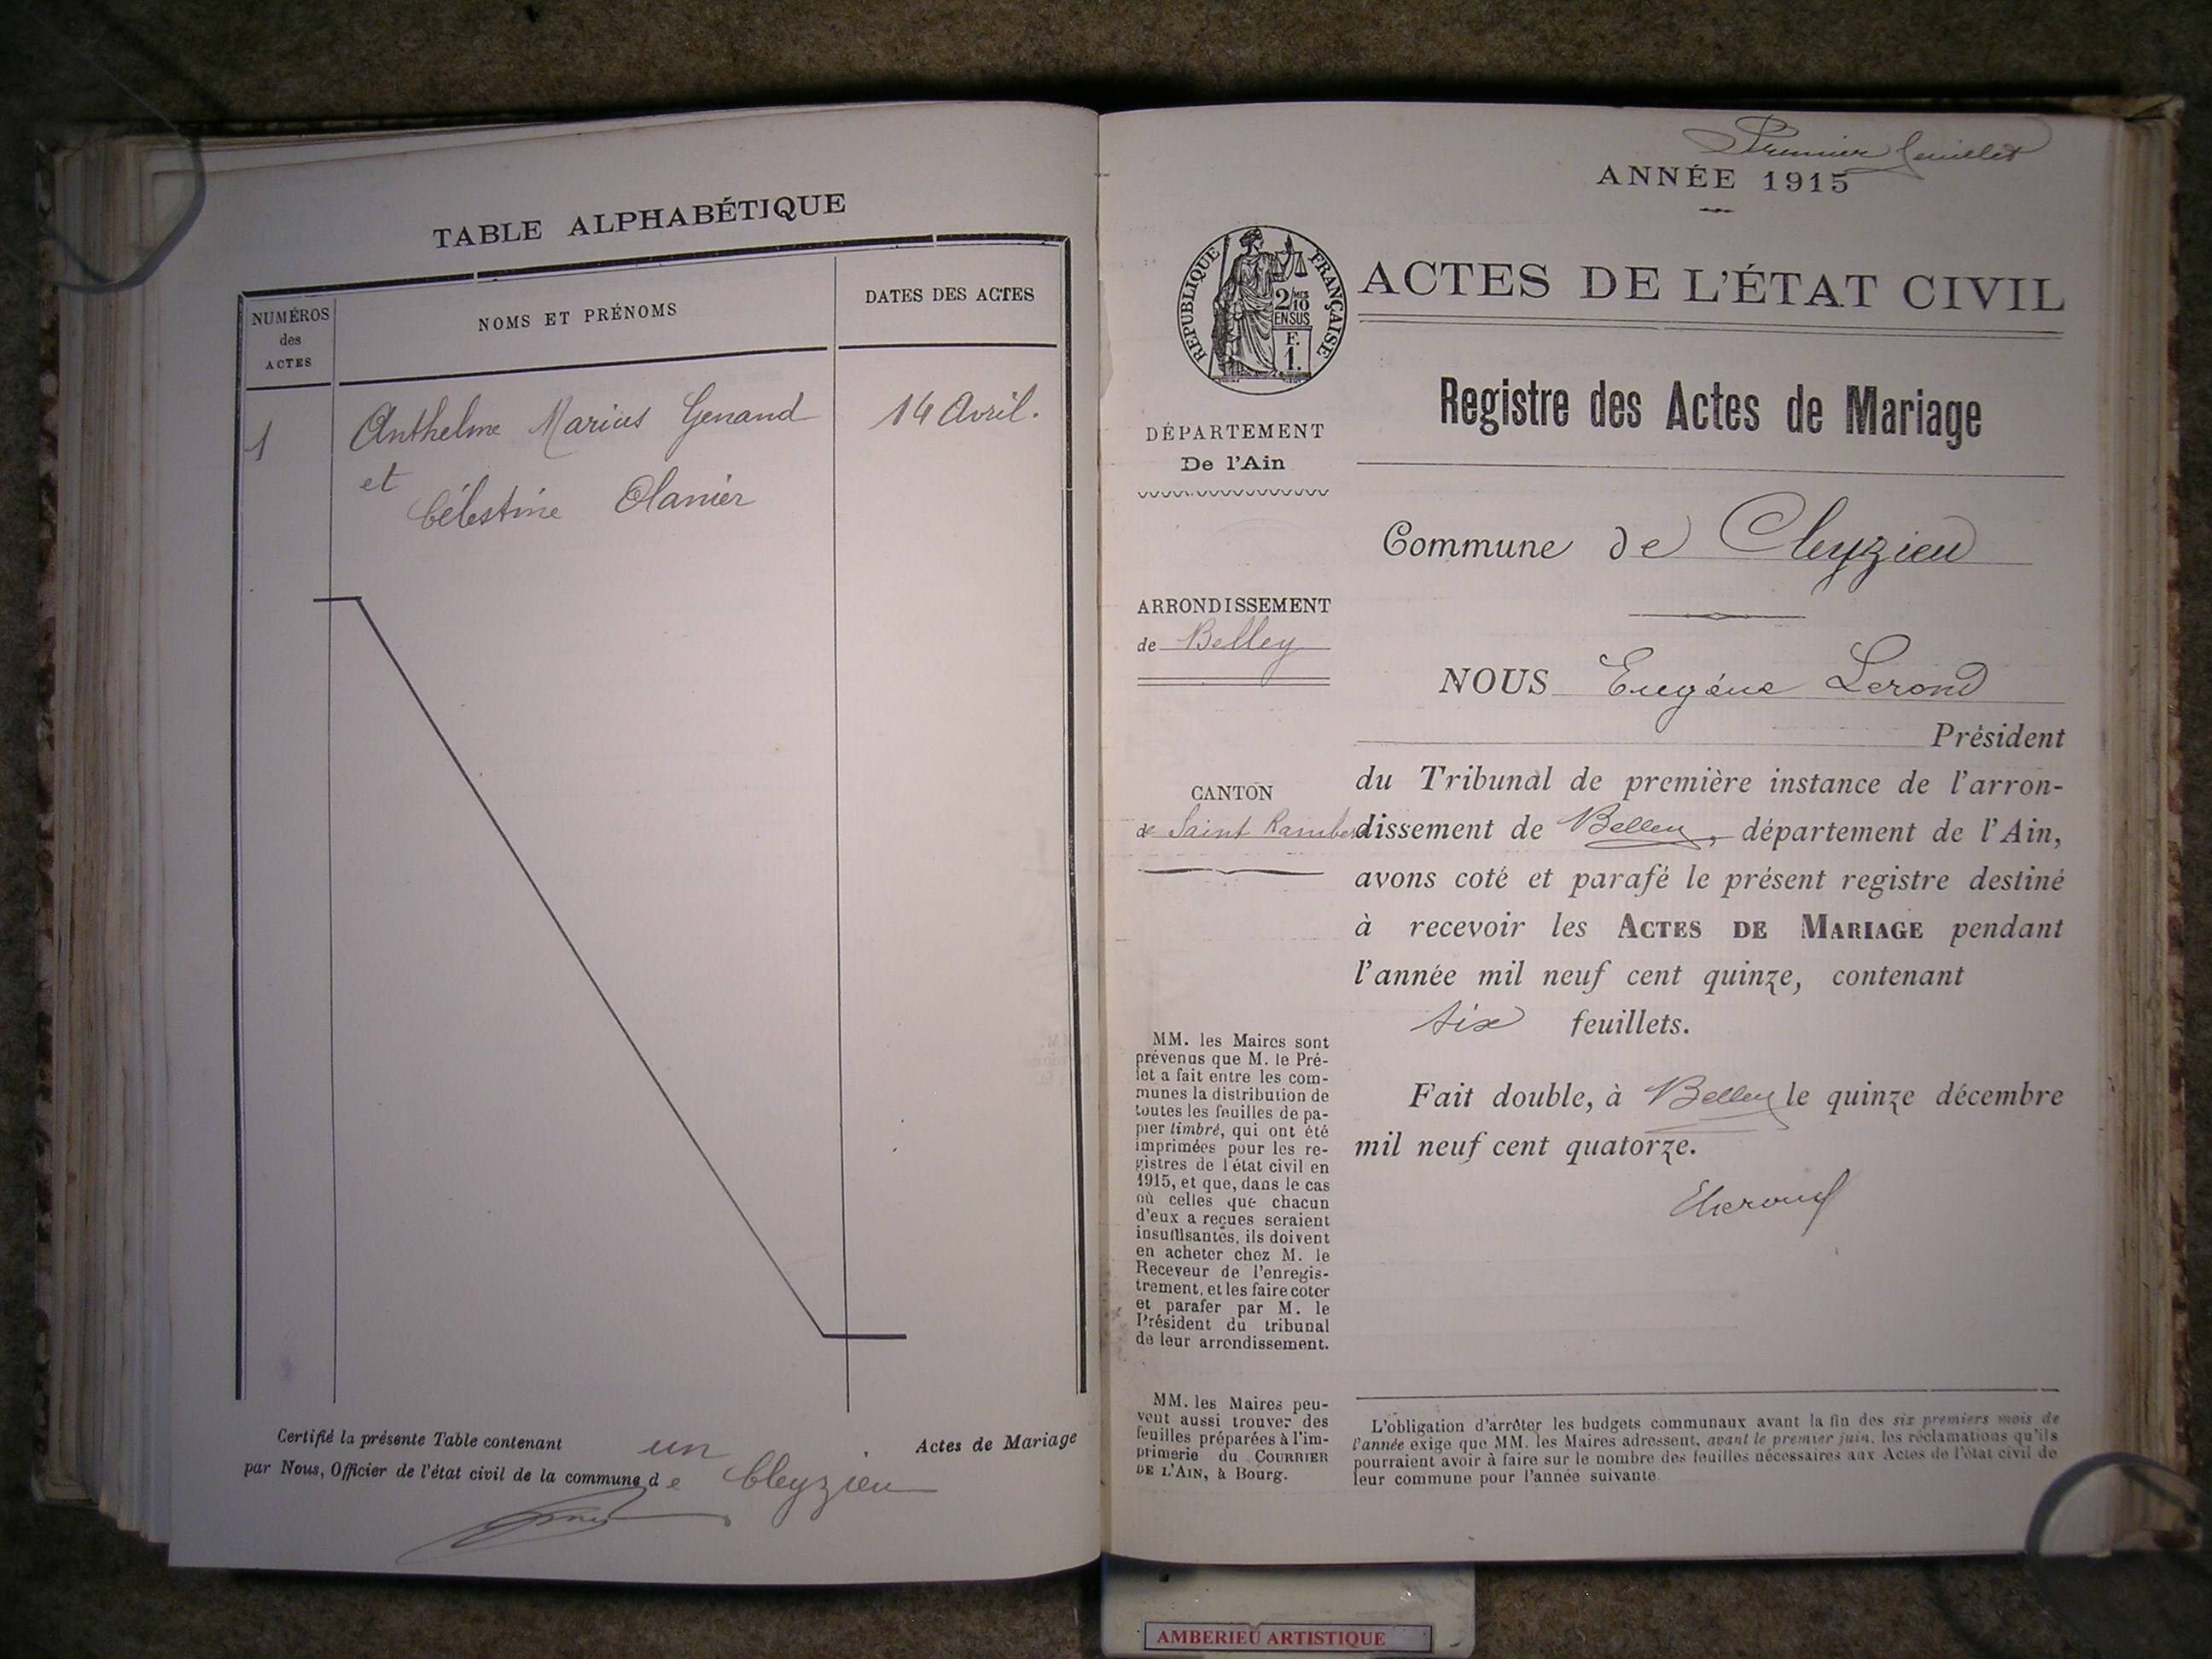 TABLE ALPHABÉTIQUE
NUMÉROS
des
ACTES
NOMS ET PRÉNOMS
DATES DES ACTES
1
Anthelme Marius Genand
14 Avril.
et
Célestine Olanier
Certifié la présente Table contenant un Actes de Mariage
par Nous, Officier de l'état civil de la commune de Cleyzieu
Premier feuillet
ANNÉE 1915
RÉPUBLIQUE FRANÇAISE
2/MES
10
EN SUS
F.
1.
ACTES DE L'ÉTAT CIVIL
Registre des Actes de Mariage
DÉPARTEMENT
De l'Ain
Commune de Cleyzieu
ARRONDISSEMENT
de Belley
CANTON
de Saint Rambert
NOUS Eugène Lerond
Président
du Tribunal de première instance de l'arron-
dissement de Belley, département de l'Ain,
avons coté et parafé le présent registre destiné
à recevoir les ACTES DE MARIAGE pendant
l'année mil neuf cent quinze, contenant
six feuillets.
Fait double, à Belley le quinze décembre
mil neuf cent quatorze.
MM. les Maires sont
prévenus que M. le Pré-
fet a fait entre les com-
munes la distribution de
toutes les feuilles de pa-
pier timbré, qui ont été
imprimées pour les re-
gistres de l'état civil en
1915, et que, dans le cas
où celles que chacun
d'eux a reçues seraient
insuffisantes, ils doivent
en acheter chez M. le
Receveur de l'enregis-
trement, et les faire coter
et parafer par M. le
Président du tribunal
de leur arrondissement.
MM. les Maires peu-
vent aussi trouver des
feuilles préparées à l'im-
primerie du COURRIER
DE L'AIN, à Bourg.
L'obligation d'arrêter les budgets communaux avant la fin des six premiers mois de
l'année exige que MM. les Maires adressent, avant le premier juin, les réclamations qu'ils
pourraient avoir à faire sur le nombre des feuilles nécessaires aux Actes de l'état civil de
leur commune pour l'année suivante.
AMBERIEU ARTISTIQUE